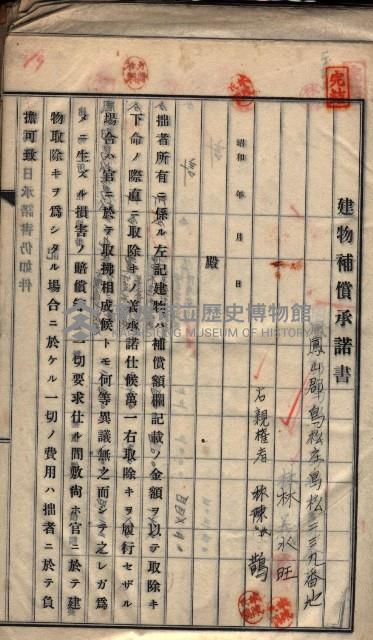 建物補償承諾書
鳳山郡鳥松庄鳥松二三九番地
林水旺
右親權者 林陳氏鵲
昭和 年 月 日
殿
拙者所有ニ係ル左記建物ハ補償額欄記載ノ金額ヲ以テ取除キ
下命ノ際直ニ取除キノ義承諾仕候萬一右取除キヲ履行セザル
場合ハ官ニ於テ取拂相成候トモ何等異議無之而シテ之レガ爲
メニ生ズル損害ノ賠償 一切要求仕ル間敷尚ホ官ニ於テ建
物取除キヲ爲シタル場合ニ於ケル一切ノ費用ハ拙者ニ於テ負
擔可致 日承諾書仍如件
完結
歷史博物館
MUSEUM OF HISTORY